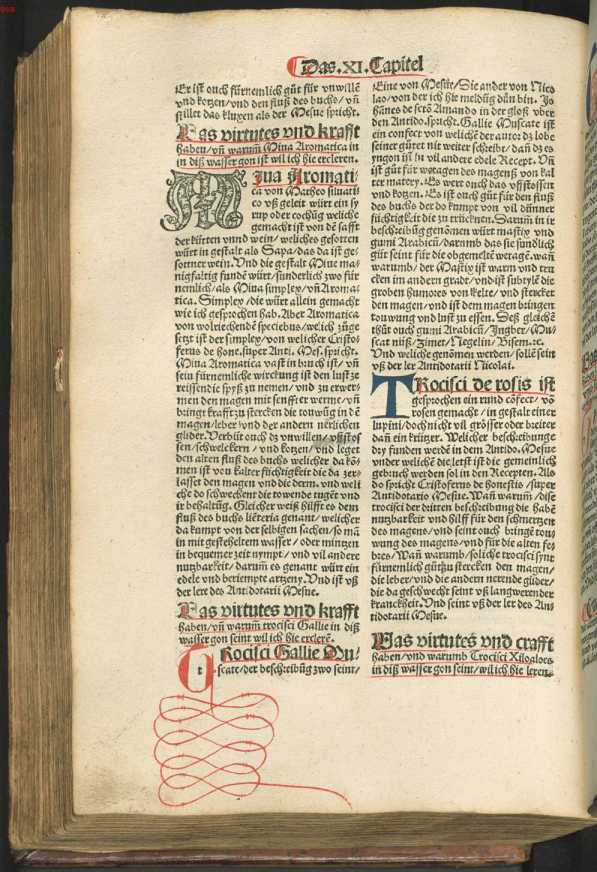 Das .XI. Capitel
Er ist ouch fürnemlich güt für vnwillē
vnd kotzen/vnd den fluß des buchs/ vñ
stillet das kluxen als der Mesue spricht.
Was virtutes vnd krafft
haben/vñ warum̄ Miua Aromatica in
in diß wasser gon ist wil ich hie ercleren.
Miua Aromati-
ca von Matheo siluati
co vß geleit würt ein sy
rup oder cochüg weliche
gemacht ist von dē safft
der kütten vnnd wein/ weliches gesotten
würt in gestalt als Sapa/das da ist ge-
sottner wein. Vnd die gestalt Miue ma-
nigfaltig fundē würt/sunderlich zwo für
nemlich/als Miua simplex/vñ Aroma-
tica. Simplex/die würt allein gemacht
wie ich gesprochen hab. Aber Aromatica
von wolriechendē speciebus/welich züge
setzt ist der simplex/von welicher Cristo-
ferus de hone. super Anti. Mes. spricht.
Miua Aromatica vast in bruch ist/ vñ
sein fürnemliche wirckung ist den lust ze
reissen die spyß zu nemen/ vnd zu erwer-
men den magen mit senffter werme/vñ
bringt krafft zu stercken die touwūg in dē
magen/leber vnd der andern nerlichen
glider. Verbüt ouch dz vnwillen/vffstos
sen/schwelckern/ vnd kotzen/ vnd leget
den alten fluß des buchs welicher da kō-
men ist von kalter füchtigkeit die da zer-
lasset den magen vnd die derm. vnd weli
che do schwechent die towende tuget vnd
ir behaltūg. Gleicher weiß hilfft es dem
fluß des buchs liēteria genant/ welicher
da kumpt von der selbigen sachen/so mā
in mit gestcheltem wasser/ oder mintzen
in bequemer zeit nympt/ vnd vil andere
nutzbarkeit/ darum̄ es genant würt ein
edele vnd beriempte artzeny. Vnd ist vß
der lere des Antidotarii Mesue.
Was virtutes vnd krafft
haben/ vñ warum̄ trocisci Gallie in diß
wasser gon seint wil ich hie erclerē.
Trocisci Gallie Mu-
t
scate/der beschribūg zwo seint/
Eine von Mesue/ Die ander von Nico
lao/von der ich hie meldūg dūn bin. Jo
hānes de sctō Amando in der gloß vber
den Antido. spricht. Gallie Muscate ist
ein confect von welichē der autor dz lobe
seiner gütet nit weiter schribt/ dañ dz es
yngon ist in vil andere edele Recept. Vñ
ist güt für wetagen des magenß von kal
ter matery. Es wert ouch das vffstossen
vnd kotzen. Es ist ouch güt für den fluß
des buchs der do kumpt von vil dünner
füchtigkeit die zu trücknen. Darum̄ in ir
beschribūg genōmen würt mastix vnd
gumi Arabicū/darumb das sie sundlich
güt seint für die obgemeltē wetagē. wañ
warumb/ der Mastix ist warm vnd tru
cken im andern gradt/ vnd ist subtylē die
groben humores von kelte/ vnd stercket
den magen/ vnd ist dem magen bringen
touwung vnd lust zu essen. Deß gleichē
thüt ouch gumi Arabicū/Ingber/Mu-
scat nüß/Zimet/Negelin/Bisem.ꝛc.
Vnd weliche genōmen werden/ sollē sein
vß der ler Antidotarii Nicolai.
TRocisci de rosis ist
gesprochen ein rund cōfect/ vō
rosen gemacht/ in gestalt einer
lupini/doch nicht vil grösser oder breiter
dañ ein krützer. Welicher beschribunge
dry funden werdē in dem Antido. Mesue
vnder welichē die letst ist die gemeinlich
gebrucht werden sol in den Recepten. Als
do spricht Cristoferus de honestis / super
Antidotario Mesue. Wañ warum̄ / dise
trocisci der dritten beschribung die habē
nutzbarkeit vnd hilff für den schmertzen
des magens/vnd seint ouch bringē tou-
wung des magens/vnd für die alten fe-
bres/Wañ warumb/soliche trocisci synt
fürnemlich güt zu stercken den magen/
die leber/vnd die andern nerende glider/
die da geschwecht seint vß langwerender
kranckheit. Vnd seint vß der ler des An-
tidotarii Mesue.
Was virtutes vnd crafft
haben/vnd warumb Trocisci Xiloaloes
in diß wasser gon seint/wil ich hie leren.